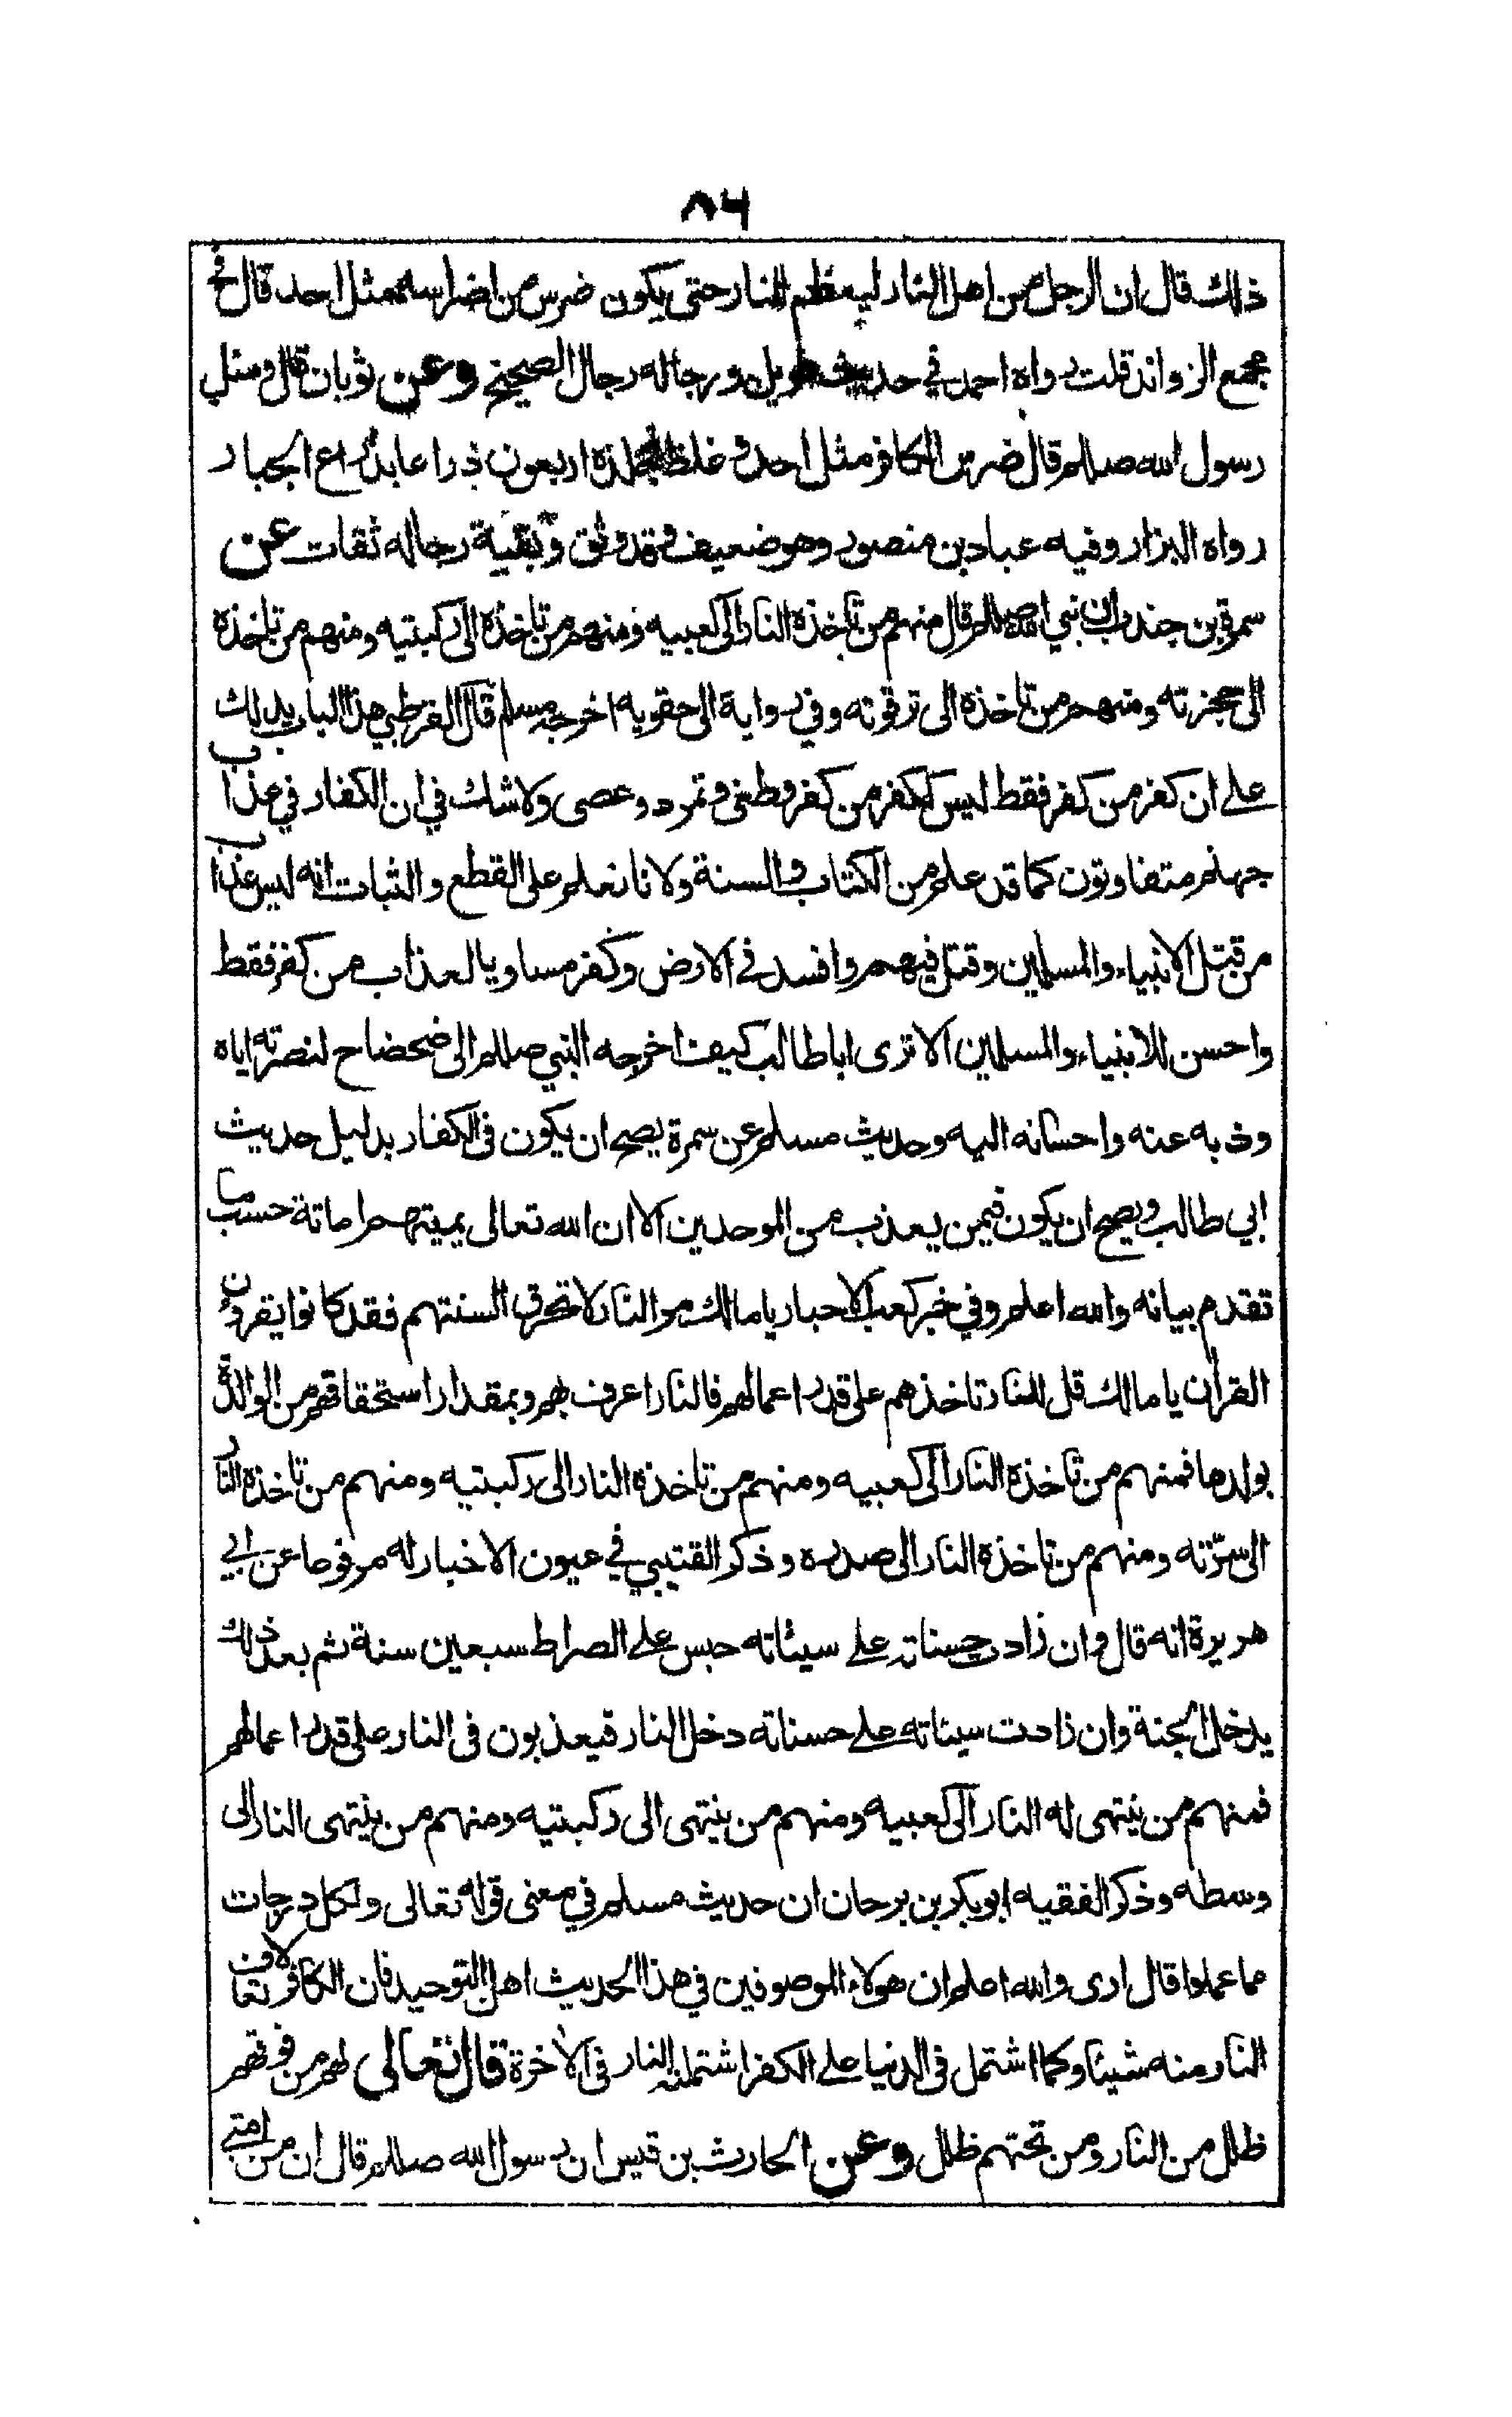 ٨٦
ذلك قال ان الرجل من اهل النار ليعظم للنار حتى يكون ضرس من اضراسه مثل احد قال في
مجمع الزوائد قلت رواه احمد في حديث طويل ورجاله رجال الصحيح وعن ثوبان قال وسئل
رسول الله صللم قال ضرس الكافر مثل احد وغلظ جلده اربعون ذراعا بذراع الجبار
رواه البزار وفيه عباد بن منصور وهو ضعيف وقد وثق وبقية رجاله ثقات عن
سمرة بن جندب ان نبي الله صللم قال منهم من تاخذه النار الى كعبيه ومنهم من تاخذه الى ركبتيه ومنهم من تاخذه
الى حجزته ومنهم من تاخذه الى ترقوته وفي رواية الى حقويه اخرجه مسلم قال القرطبي هذا الباب يدلك
على ان كفر من كفر فقط ليس ككفر من كفر وطغى وتمرد وعصى ولا شك في ان الكفار في عذاب
جهنم متفاوتون كما قد علم من الكتاب والسنة ولانا نعلم على القطع والثبات انه ليس عذاب
من قتل الانبياء والمسلمين وقتل فيهم وافسد في الارض وكفر مساويا لعذاب من كفر فقط
واحسن للانبياء والمسلمين الا ترى ابا طالب كيف اخرجه النبي صللم الى ضحضاح لنصرته اياه
وذبه عنه واحسانه اليه وحديث مسلم عن سمرة يصح ان يكون في الكفار بدليل حديث
ابي طالب ويصح ان يكون فيمن يعذب من الموحدين الا ان الله تعالى يميتهم اماتة حسب ما
تقدم بيانه والله اعلم وفي خبر كعب الاحبار يا مالك مر النار لا تحرق السنتهم فقد كانوا يقرؤن
القران يا مالك قل للنار تاخذهم على قدر اعمالهم فالنار اعرف بهم وبمقدار استحقاقهم من الوالدة
بولدها فمنهم من تاخذه النار الى كعبيه ومنهم من تاخذه النار الى ركبتيه ومنهم من تاخذه النار
الى سرته ومنهم من تاخذه النار الى صدره وذكر القتيبي في عيون الاخبار له مرفوعا عن ابي
هريرة انه قال وان زادت حسناته على سيئاته حبس على الصراط سبعين سنة ثم بعد ذلك
يدخل الجنة وان زادت سيئاته على حسناته دخل النار فيعذبون في النار على قدر اعمالهم
فمنهم من ينتهى له النار الى كعبيه ومنهم من ينتهى الى ركبتيه ومنهم من ينتهى النار الى
وسطه وذكر الفقيه ابو بكر بن برجان ان حديث مسلم في معنى قوله تعالى ولكل درجات
مما عملوا قال ارى والله اعلم ان هولاء الموصوفين في هذا الحديث اهل التوحيد فان الكافر لا تعاف
النار منه شيئا وكما اشتمل في الدنيا على الكفر اشتملته النار في الاخرة قال تعالى لهم من فوقهم
ظلل من النار ومن تحتهم ظلل وعن الحارث بن قيس ان رسول الله صللم قال ان من امتي